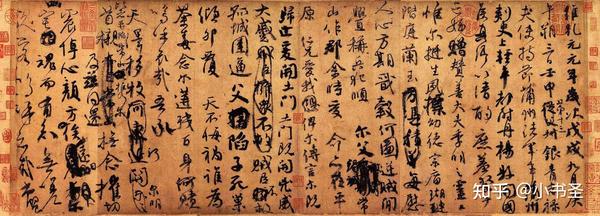 維乾元元年歲次戊戌九月庚
午朔三日壬申第十三叔銀青光祿
夫使持節蒲州諸軍事蒲州
刺史上輕車都尉丹楊縣開國
侯真卿以清酌庶羞祭于
亡姪贈贊善大夫季明之靈曰
惟爾挺生夙標幼德宗廟瑚璉
階庭蘭玉每慰
人心方期戩穀何圖逆賊閒
釁稱兵犯順爾父竭誠常
山作郡余時受命亦在平
原仁兄愛我俾爾傳言爾既
歸止爰開土門土門既開凶威
大蹙賊臣不救
孤城圍逼父陷子死巢
傾卵覆天不悔禍誰為
荼毒念爾遘殘百身何贖
嗚呼哀哉吾承
天澤移牧河關泉明
比者再陷常山攜爾
首櫬及茲同還撫念摧切
震悼心顏方俟遠日
卜爾幽宅魂而有知無嗟
久客嗚呼哀哉尚饗
知乎 @小书圣